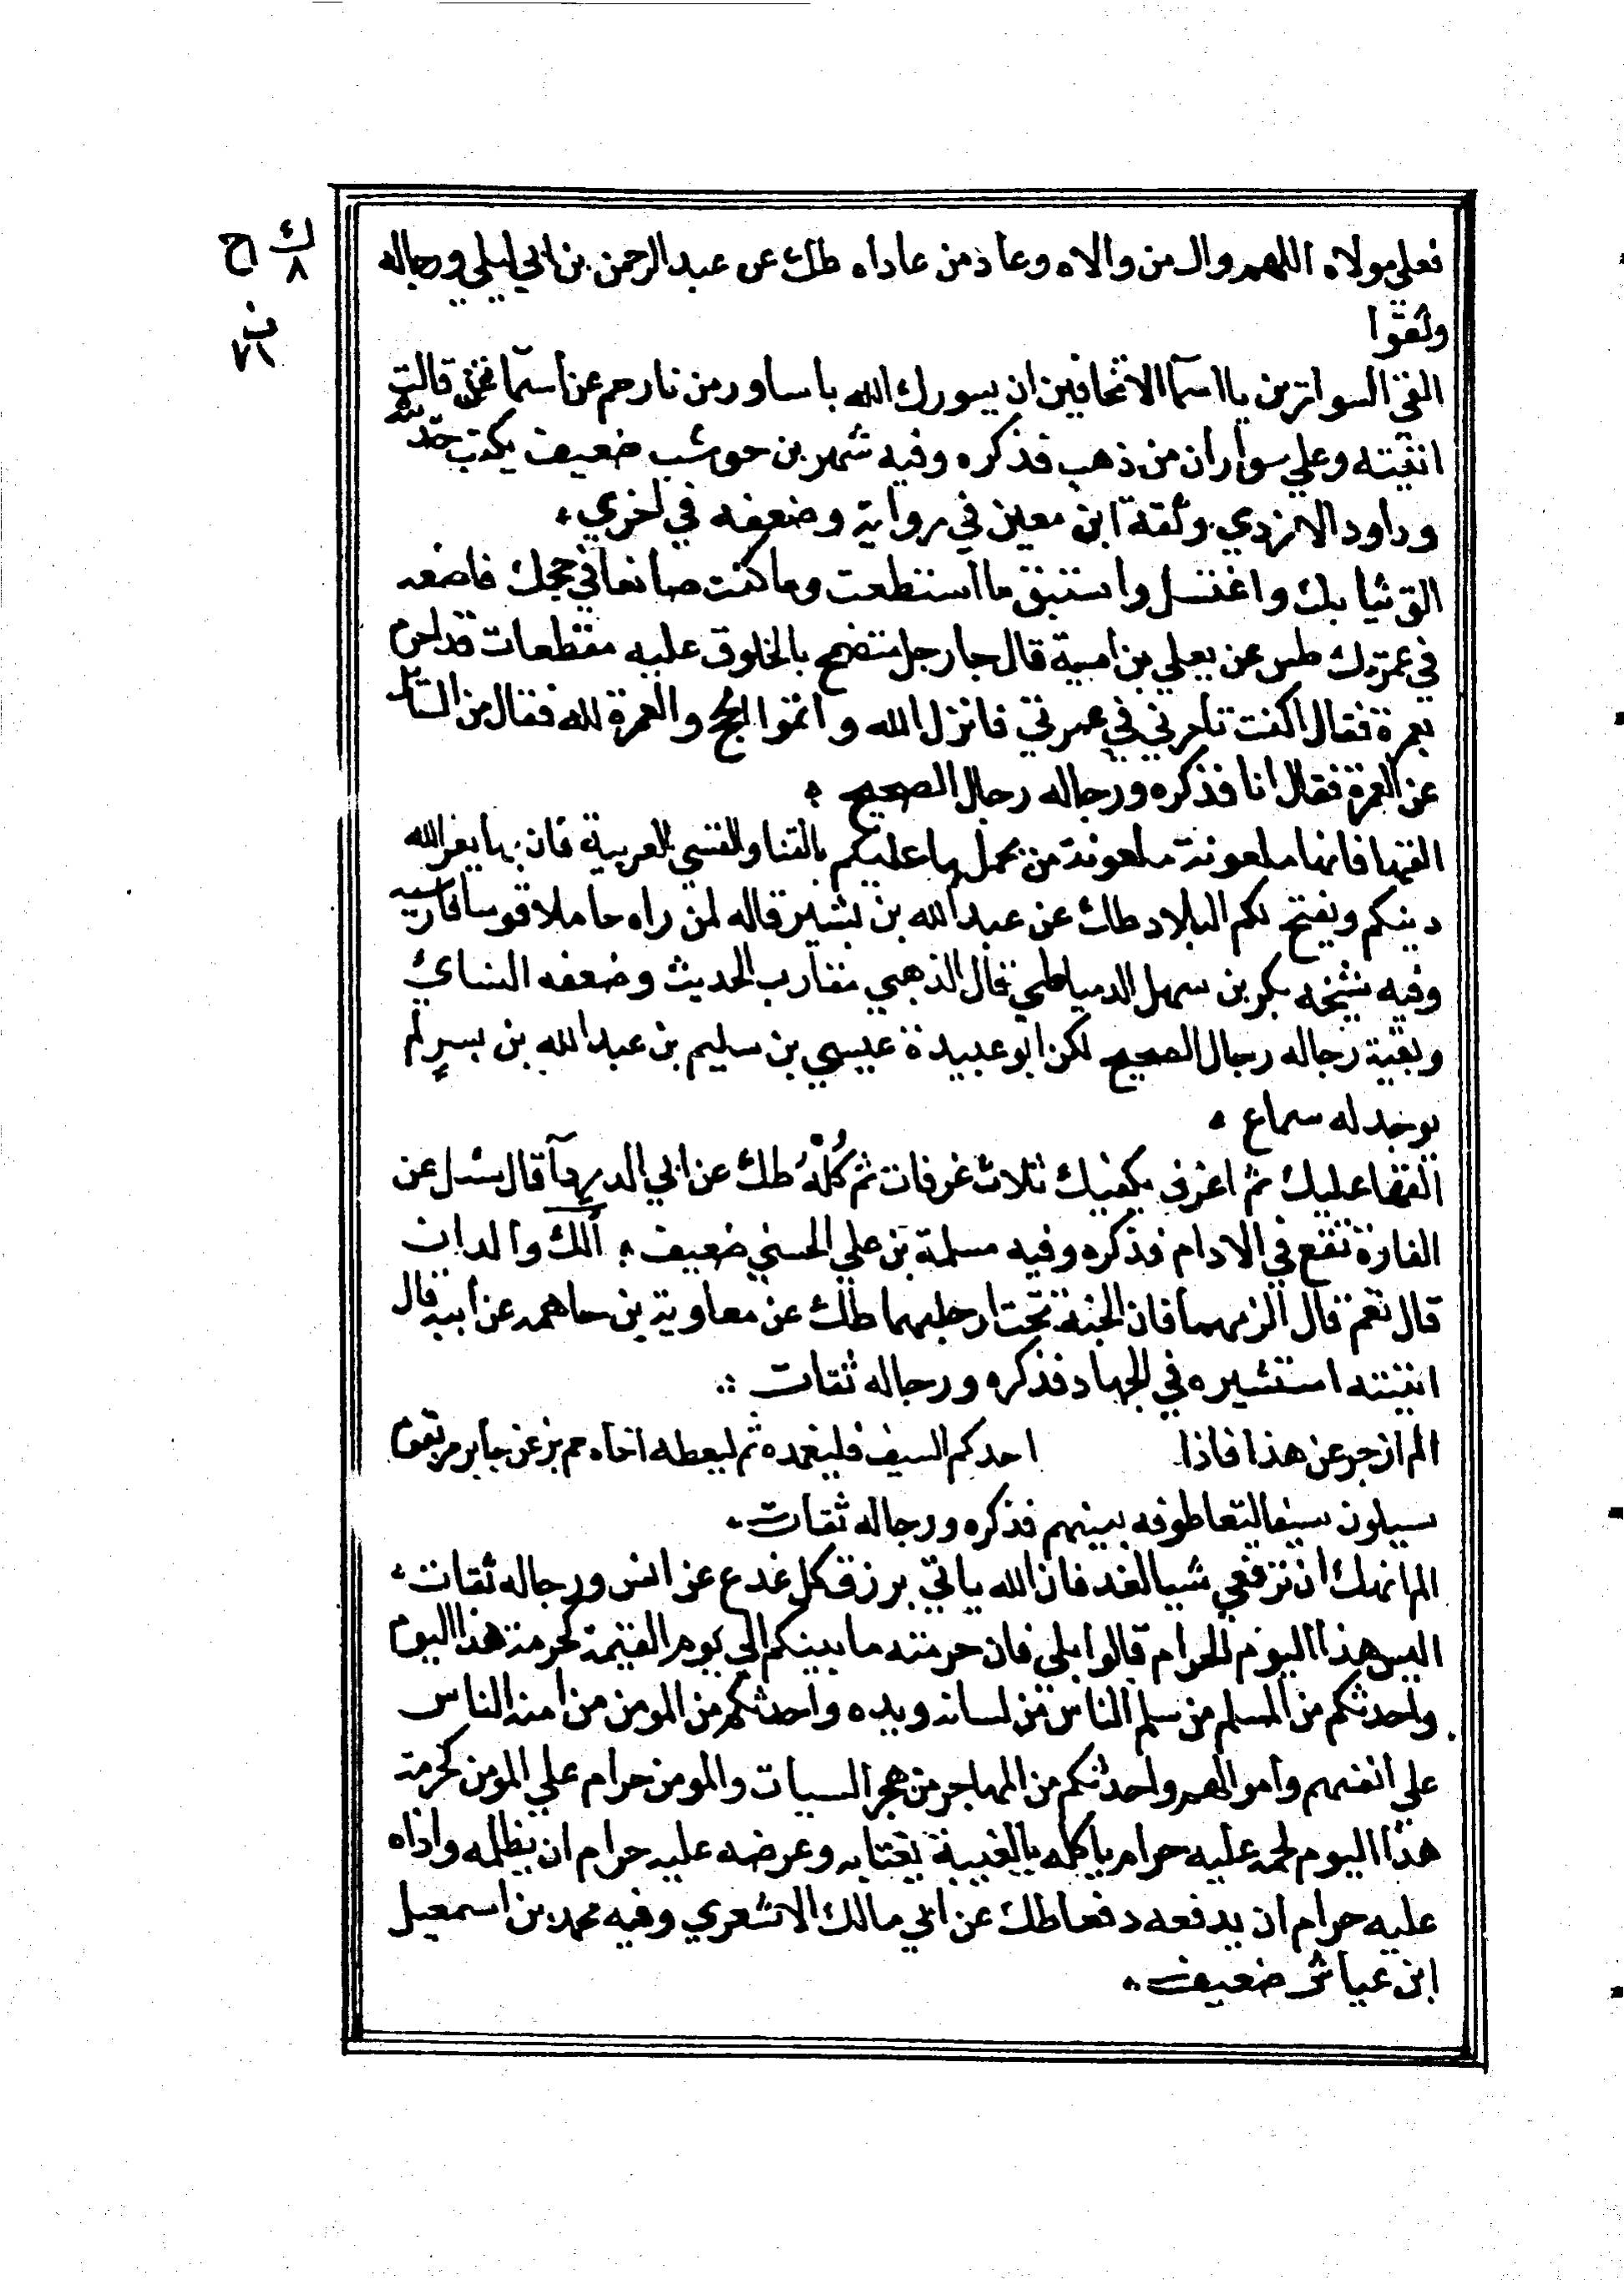 فعلي مولاه اللهم وال من والاه وعاد من عاداه طك عن عبد الرحمن بن ابي ليلي ورجاله
وثقوا
القي السوارين يا اسما الا تخافين ان يسورك الله باساور من نار حم عن اسما قالت
اتيته وعلي سواران من ذهب فذكره وفيه شهر بن حوشب ضعيف يكتب حديثه
وداود الازدي وثقة ابن معين في رواية وضعفه في اخري
الق ثيابك واغتسل واستنق ما استطعت وما كنت صانعا في حجك فاصنعه
في عمرتك طس عن يعلي بن امية قال جا رجل متضمخ بالخلوق عليه مقطعات قد احرم
بعمرة فقال اكنت تامرني في عمرتي فانزل الله واتموا الحج والعمرة لله فقال من السائل
عن العمرة فقال انا فذكره ورجاله رجال الصحيح
القها فانها ملعونة ملعونة من يحملها عليكم بالقنا والقسي العربية فان بها يعز الله
دينكم ويفتح لكم البلاد طك عن عبد الله بن بشير قاله لمن راه حاملا قوسا فارسية
وفيه شيخه بكر بن سهل الدمياطي قال الذهبي مقارب الحديث وضعفه النسائي
وبقية رجاله رجال الصحيح لكن ابو عبيدة عيسي بن سليم بن عبد الله بن بسر لم
يوجد له سماع
القها عليك ثم اغرف بكفيك ثلاث غرفات ثم كله طك عن ابي الدردآ قال سئل عن
الفارة تقع في الادام فذكره وفيه مسلمة بن علي الحسني ضعيف الك والدان
قال نعم قال الزمهما فان الجنة تحت ارجلهما طك عن معاوية بن جاهمه عن ابيه قال
اتيته استشيره في الجهاد فذكره ورجاله ثقات
الم ازجر عن هذا فاذا احدكم السيف فليغمده ثم ليعطه اخاه حم بز عن جابر مر بقوم
يسلون سيفا يتعاطوفه بينهم فذكره ورجاله ثقات
الم انهك ان ترفعي شيا لغد فان الله ياتي برزق كل غد ع عن انس ورجاله ثقات
اليس هذا اليوم الحرام قالوا بلي فان حرمته ما بينكم الي يوم القيمة كحرمة هذا اليوم
واحدثكم من المسلم من سلم الناس من لسانه ويده واحدثكم من المومن من امنه الناس
علي انفسهم واموالهم واحدثكم من المهاجر من هجر السيات والمومن حرام علي المومن كحرمة
هذا اليوم لحمه عليه حرام ياكله بالغيبة يغتابه وعرضه عليه حرام ان يظلمه واذاه
عليه حرام ان يدفعه دفعا طك عن ابي مالك الاشعري وفيه محمد بن اسمعيل
ابن عياش ضعيف